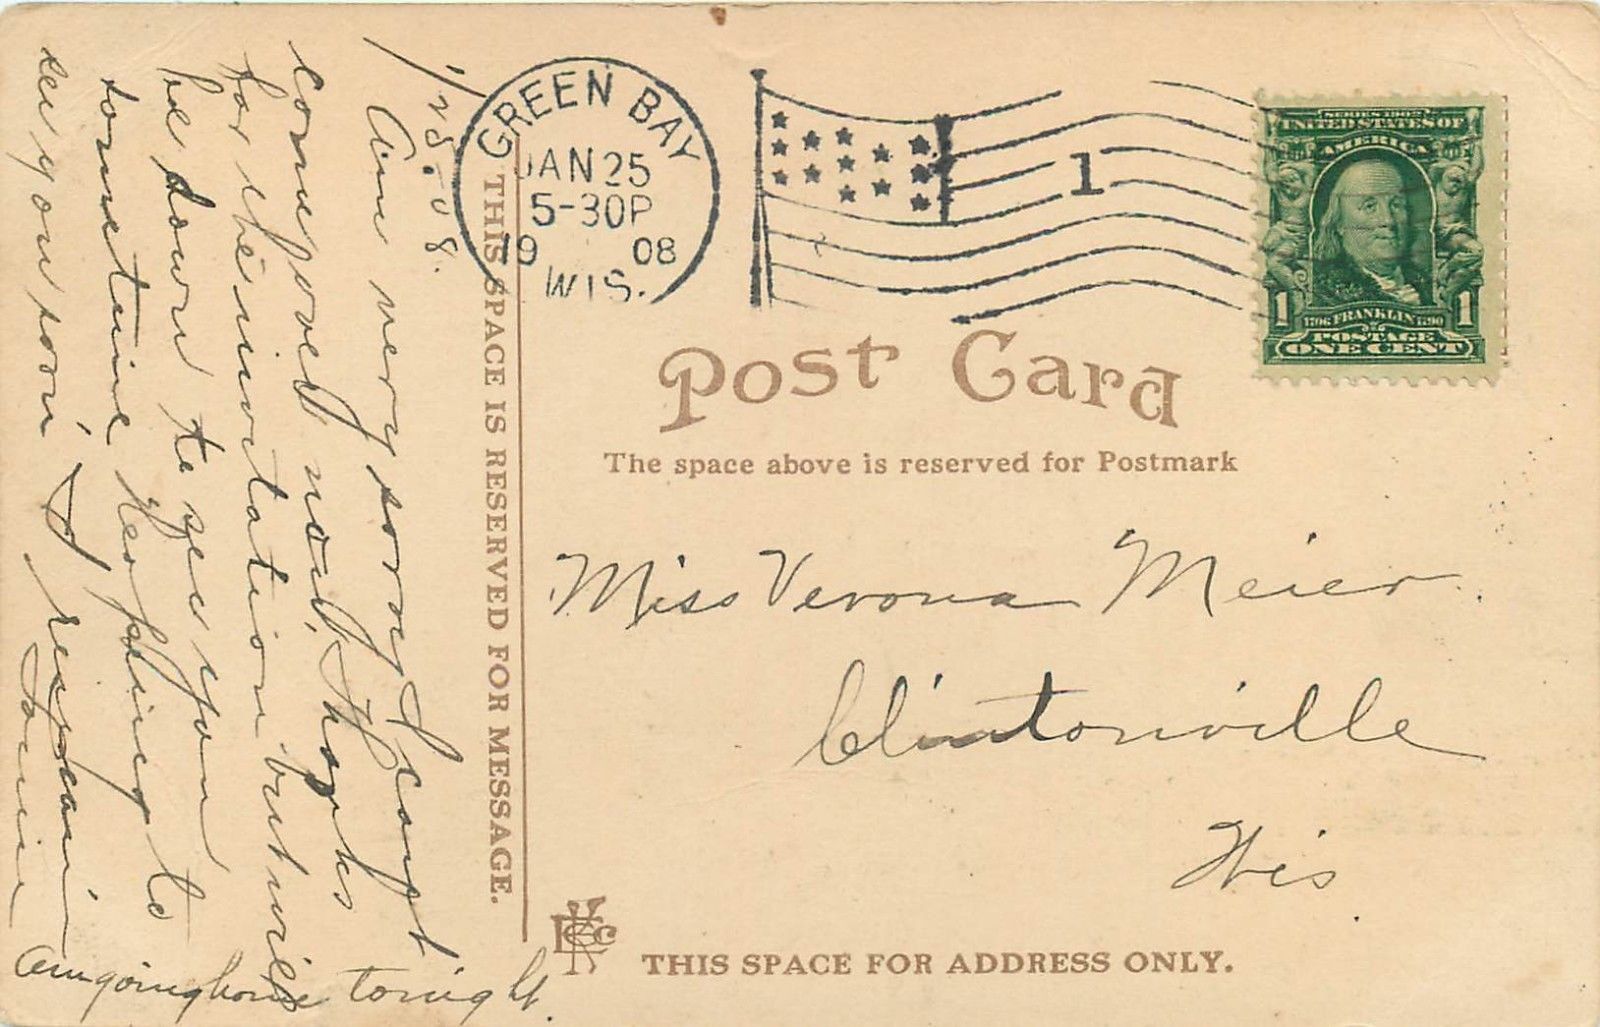 1/25.-08.
Am very sorry I can't
come over now, thanks
for the invitation but will
be down to see you
sometime. Hoping to
see you soon, I remain
Am going home tonight.
THIS SPACE IS RESERVED FOR MESSAGE.
GREEN BAY
JAN 25
5-30P
19 08
WIS.
1
SERIES 1902
UNITED STATES OF
AMERICA
1 1
1706 FRANKLIN 1790
POSTAGE
ONE CENT
Post Card
The space above is reserved for Postmark
Miss Verona Meier.
Clintonville
Wis.
THIS SPACE FOR ADDRESS ONLY.